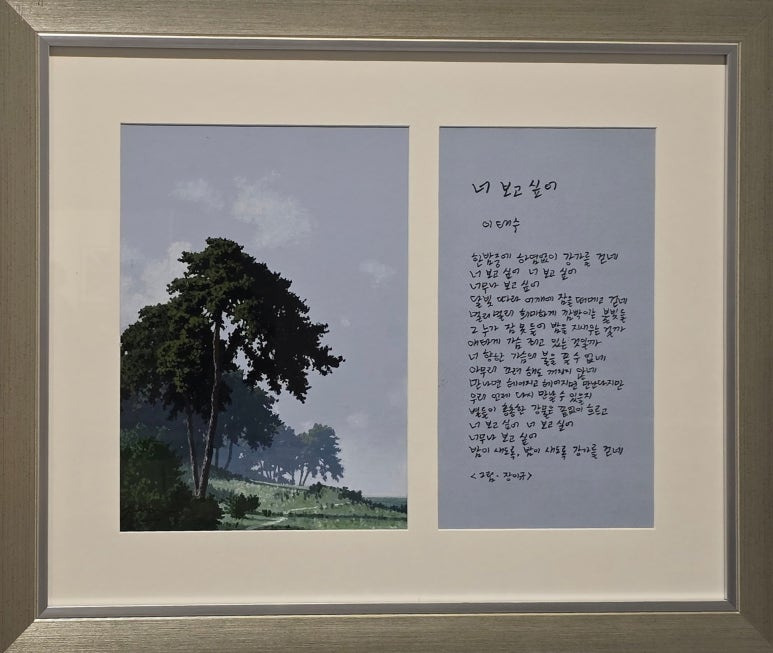 너 보고 싶어
이태수
한밤중에 하염없이 강가를 걷네
너 보고 싶어 너 보고 싶어
너무나 보고 싶어
달빛 따라 어깨에 잠을 떠메고 걷네
멀리 멀리 희미하게 깜박이는 불빛들
그 누가 잠 못 들어 밤을 지새우는 걸까
애타게 가슴 죄고 있는 것일까
너 향한 가슴의 불을 끌 수 없네
아무리 끄려 해도 꺼지지 않네
만나면 헤어지고 헤어지면 만난다지만
우리 언제 다시 만날 수 있을지
별들이 총총한 강물은 끝없이 흐르고
너 보고 싶어 너 보고 싶어
너무나 보고 싶어
밤이 새도록, 밤이 새도록 강가를 걷네
<그림·장이규>